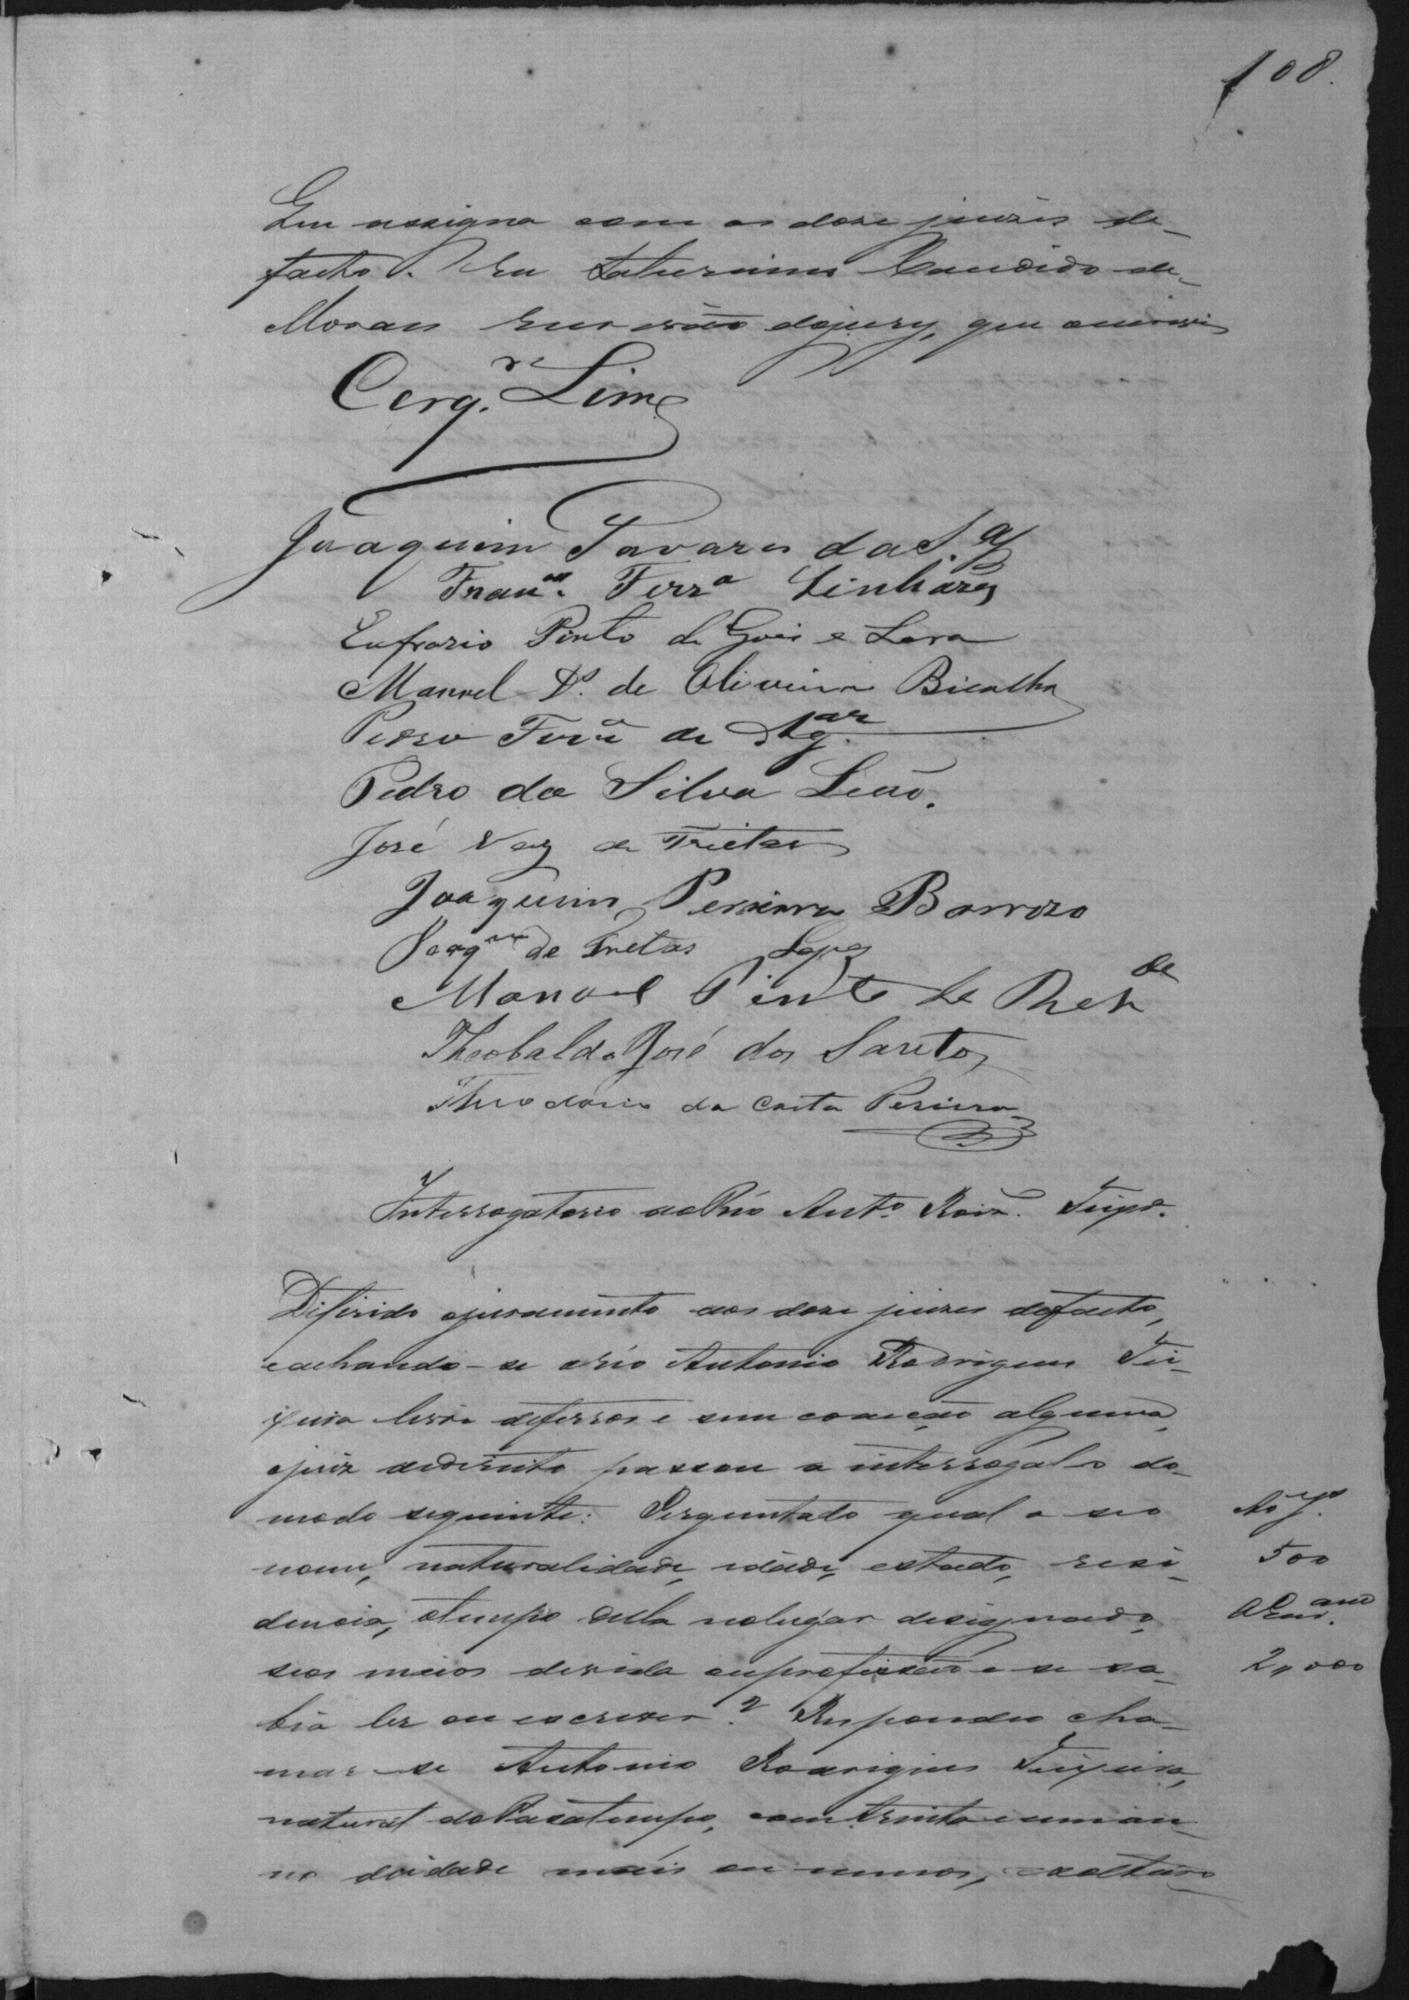 108.
Que assigna com os doze juizes de
facto. Eu Saturnino Candido de
Moraes escrivão do jury, que o escrevi
Cerq.ra Lima
Joaquim Tavares da S.a
Fran.co Ferr.a Linhares
Eufrazio Pinto de Goes e Lara
Manoel de Oliveira Bicalho
Pedro Ferr.a de Ag.ar
Pedro da Silva Leão.
José Vaz de Freitas
Joaquim Pereira Barrozo
Joaq.m de Freitas Lopes
Manoel Pinto de Rez.de
Theobaldo José dos Santos
Theodorio da Costa Pereira
Interrogatorio ao Réo Ant.o Roiz. Teix.ra
Diferido o juramento aos doze juizes de facto,
e achando-se o réo Antonio Rodrigues Tei-
xeira livre de ferros e sem coacção alguma,
o juiz de direito passou a interrogal-o do
modo seguinte: Perguntado qual o seo
nome, naturalidade, idade, estado, resi-
dencia, e tempo della no lugar designado,
seos meios de vida ou profissão e se sa-
bia ler ou escrever? Respondeo cha-
mar-se Antonio Rodrigues Teixeira,
natural do Passatempo, com trinta e um an-
no de idade mais ou menos, solteiro
Ao J.
500
ao Escr.am
2,,000